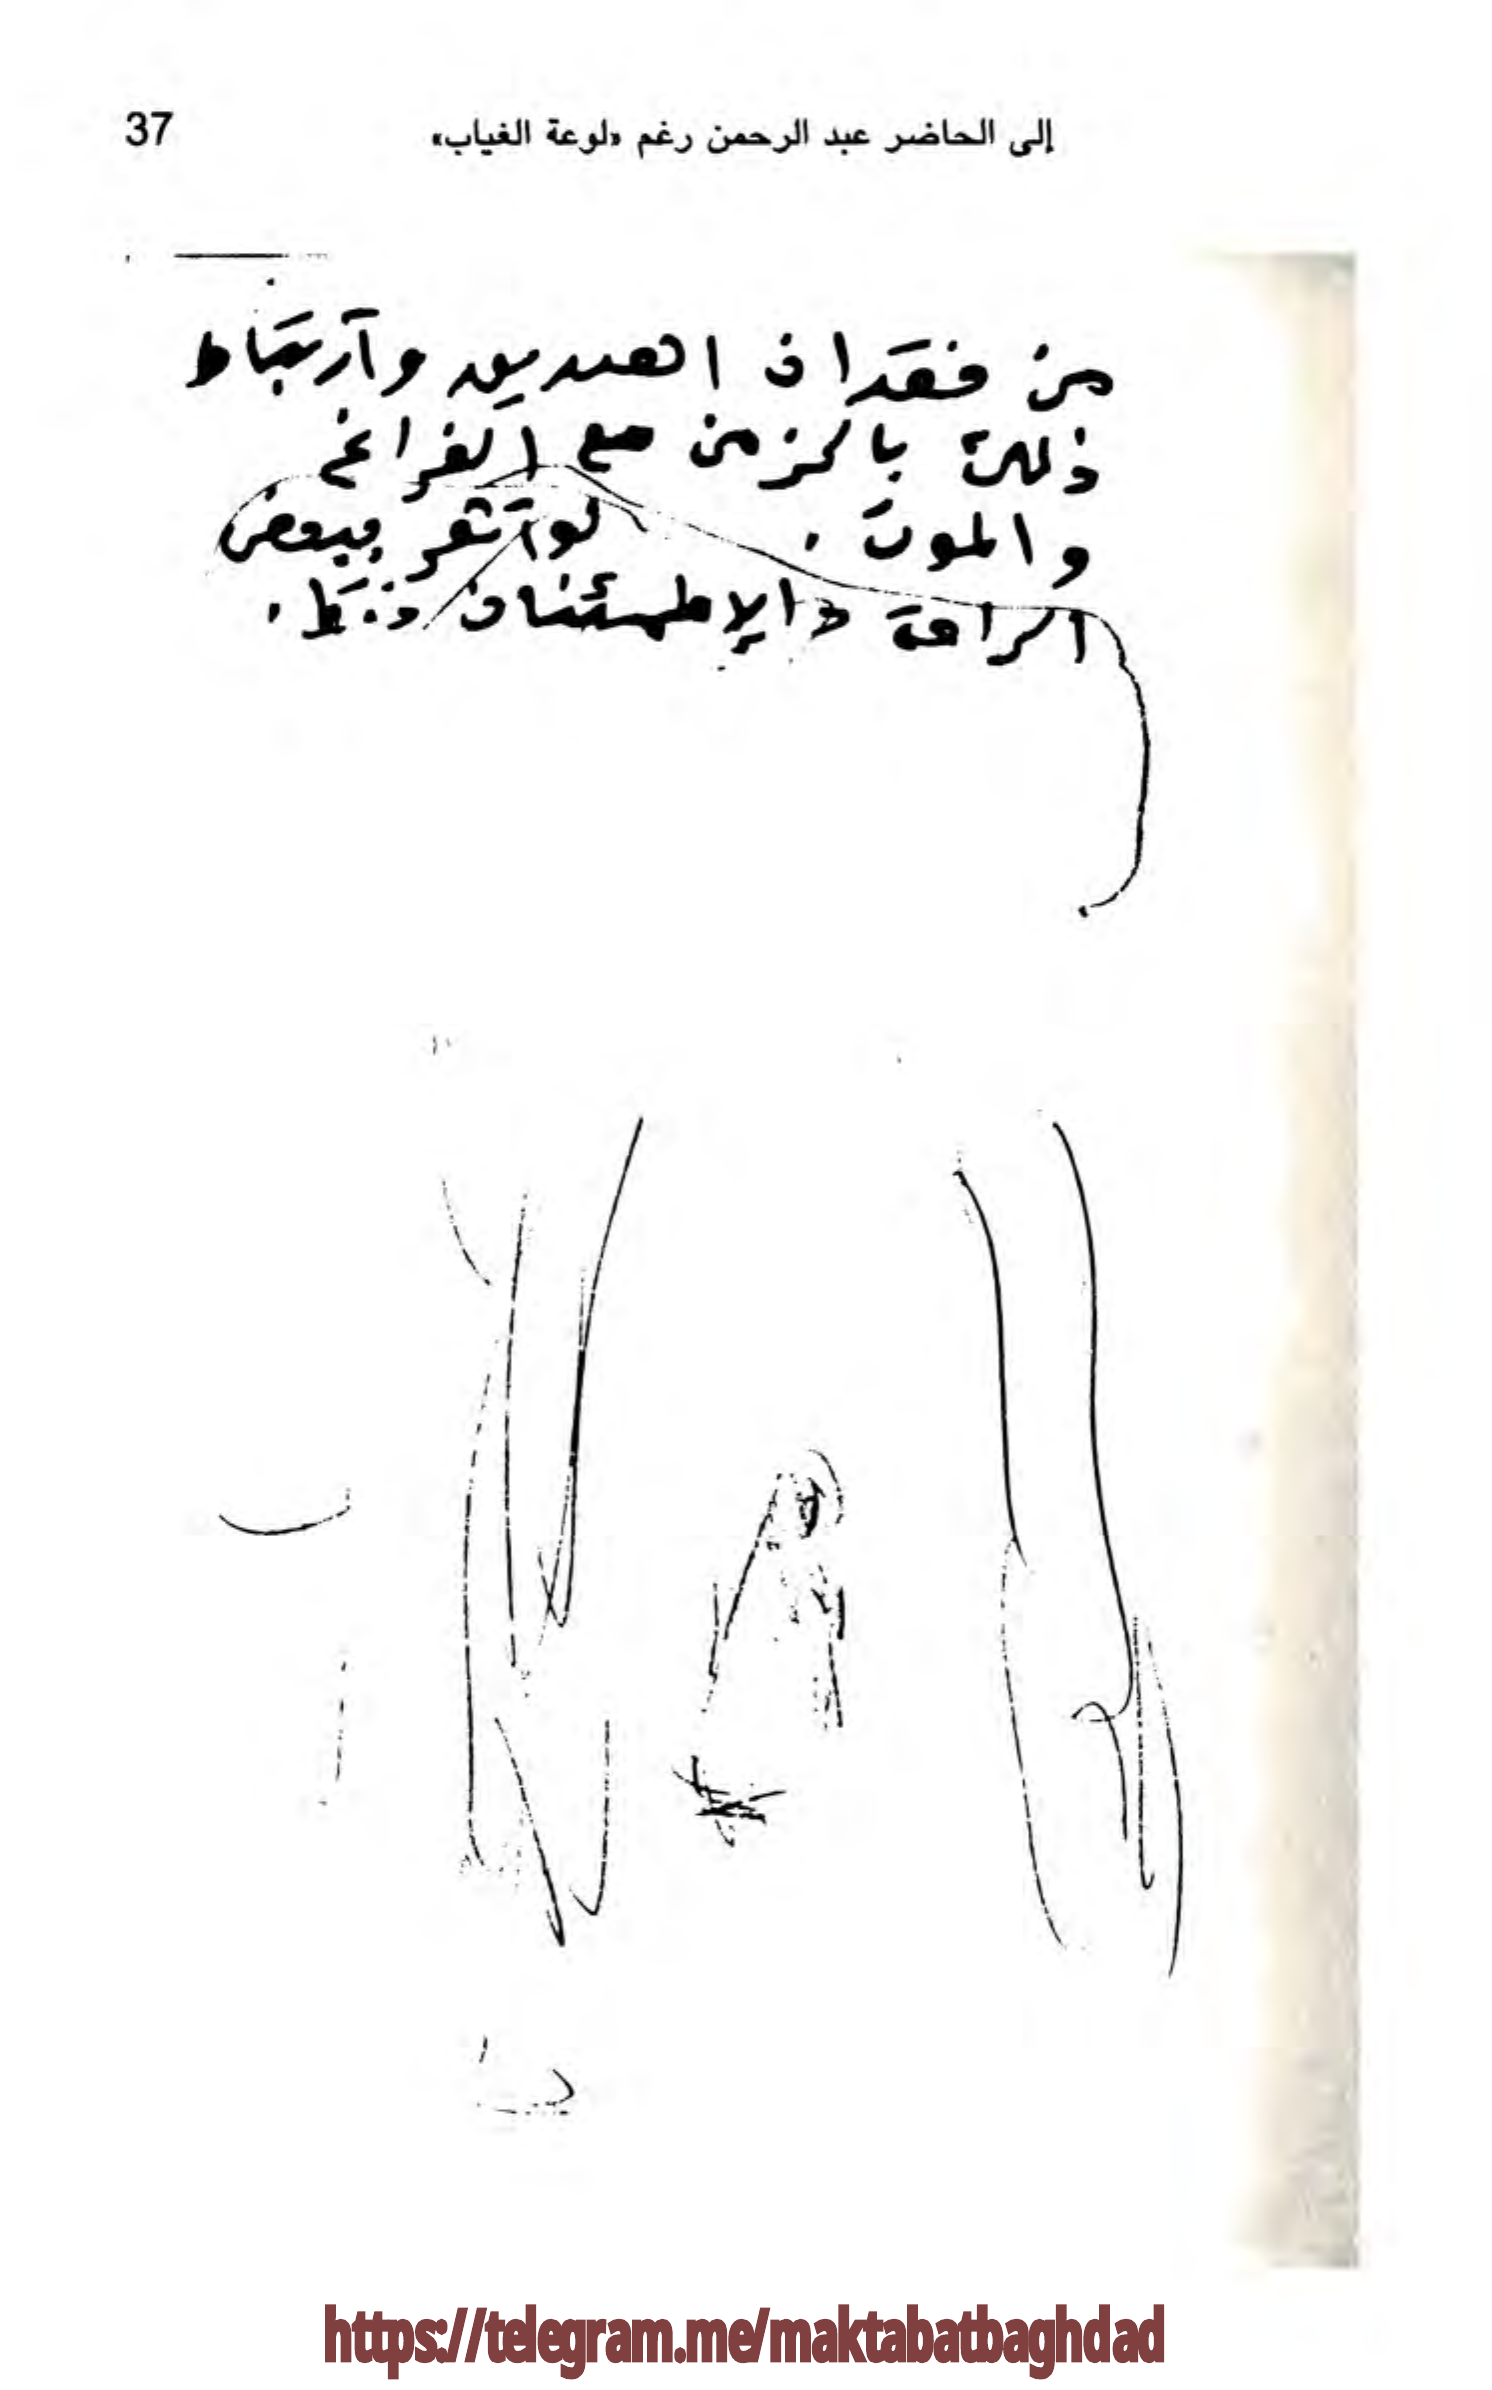 إلى الحاضر عبد الرحمن رغم «لوعة الغياب»
37
من فقدان الصديق وآرتباط
ذلك بالزمن مع الفراغ
والموت. لو آشعر ببعض
الراحة والإطمئنان فقط.
https://telegram.me/maktabatbaghdad